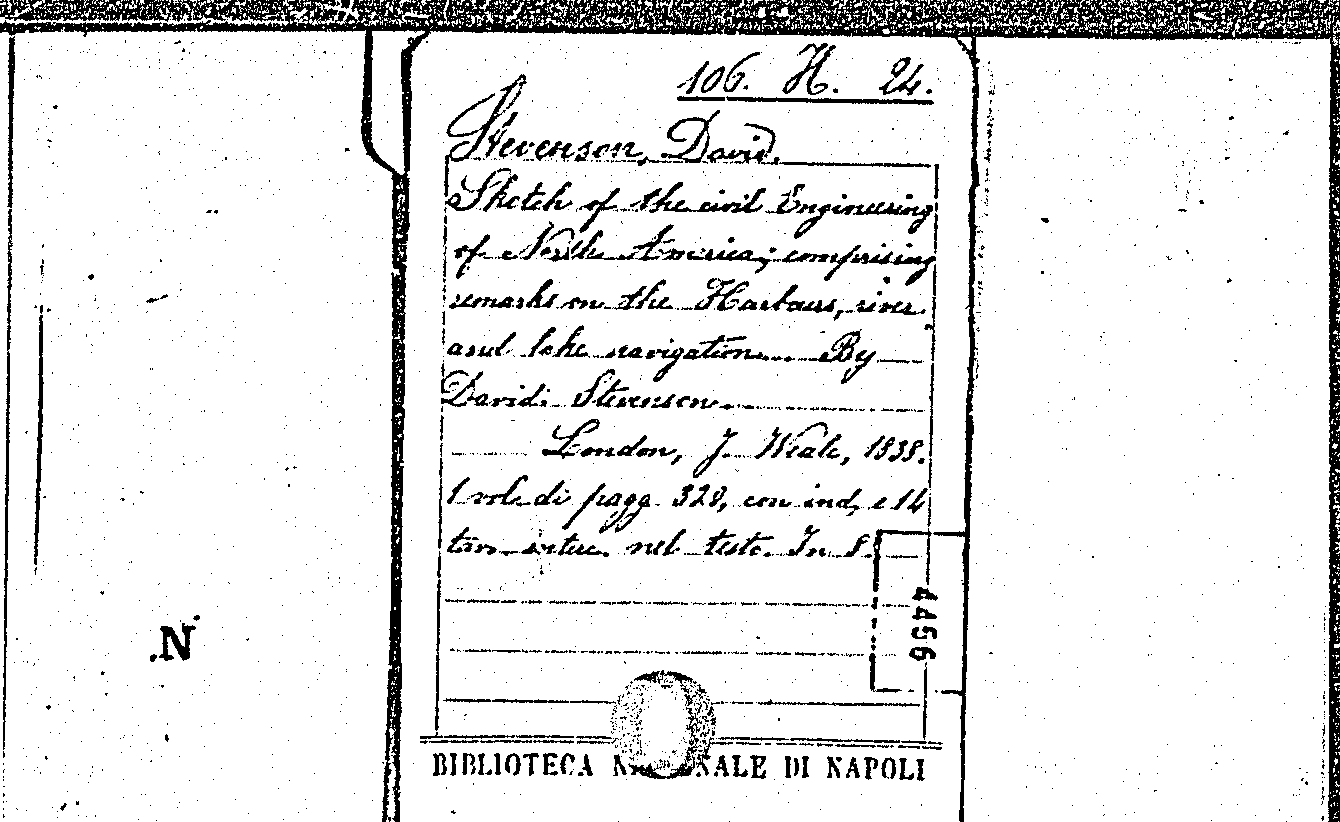 106. H. 24.
Stevenson, David.
Sketch of the civil Engineering
of North America; comprising
remarks on the Harbours, river
and lake navigation... By
David Stevenson.
London, J. Weale, 1838.
1 vol. di pagg 328, con ind, e 14
tav. nel testo. In 8.
4456
N
BIBLIOTECA NALE DI NAPOLI